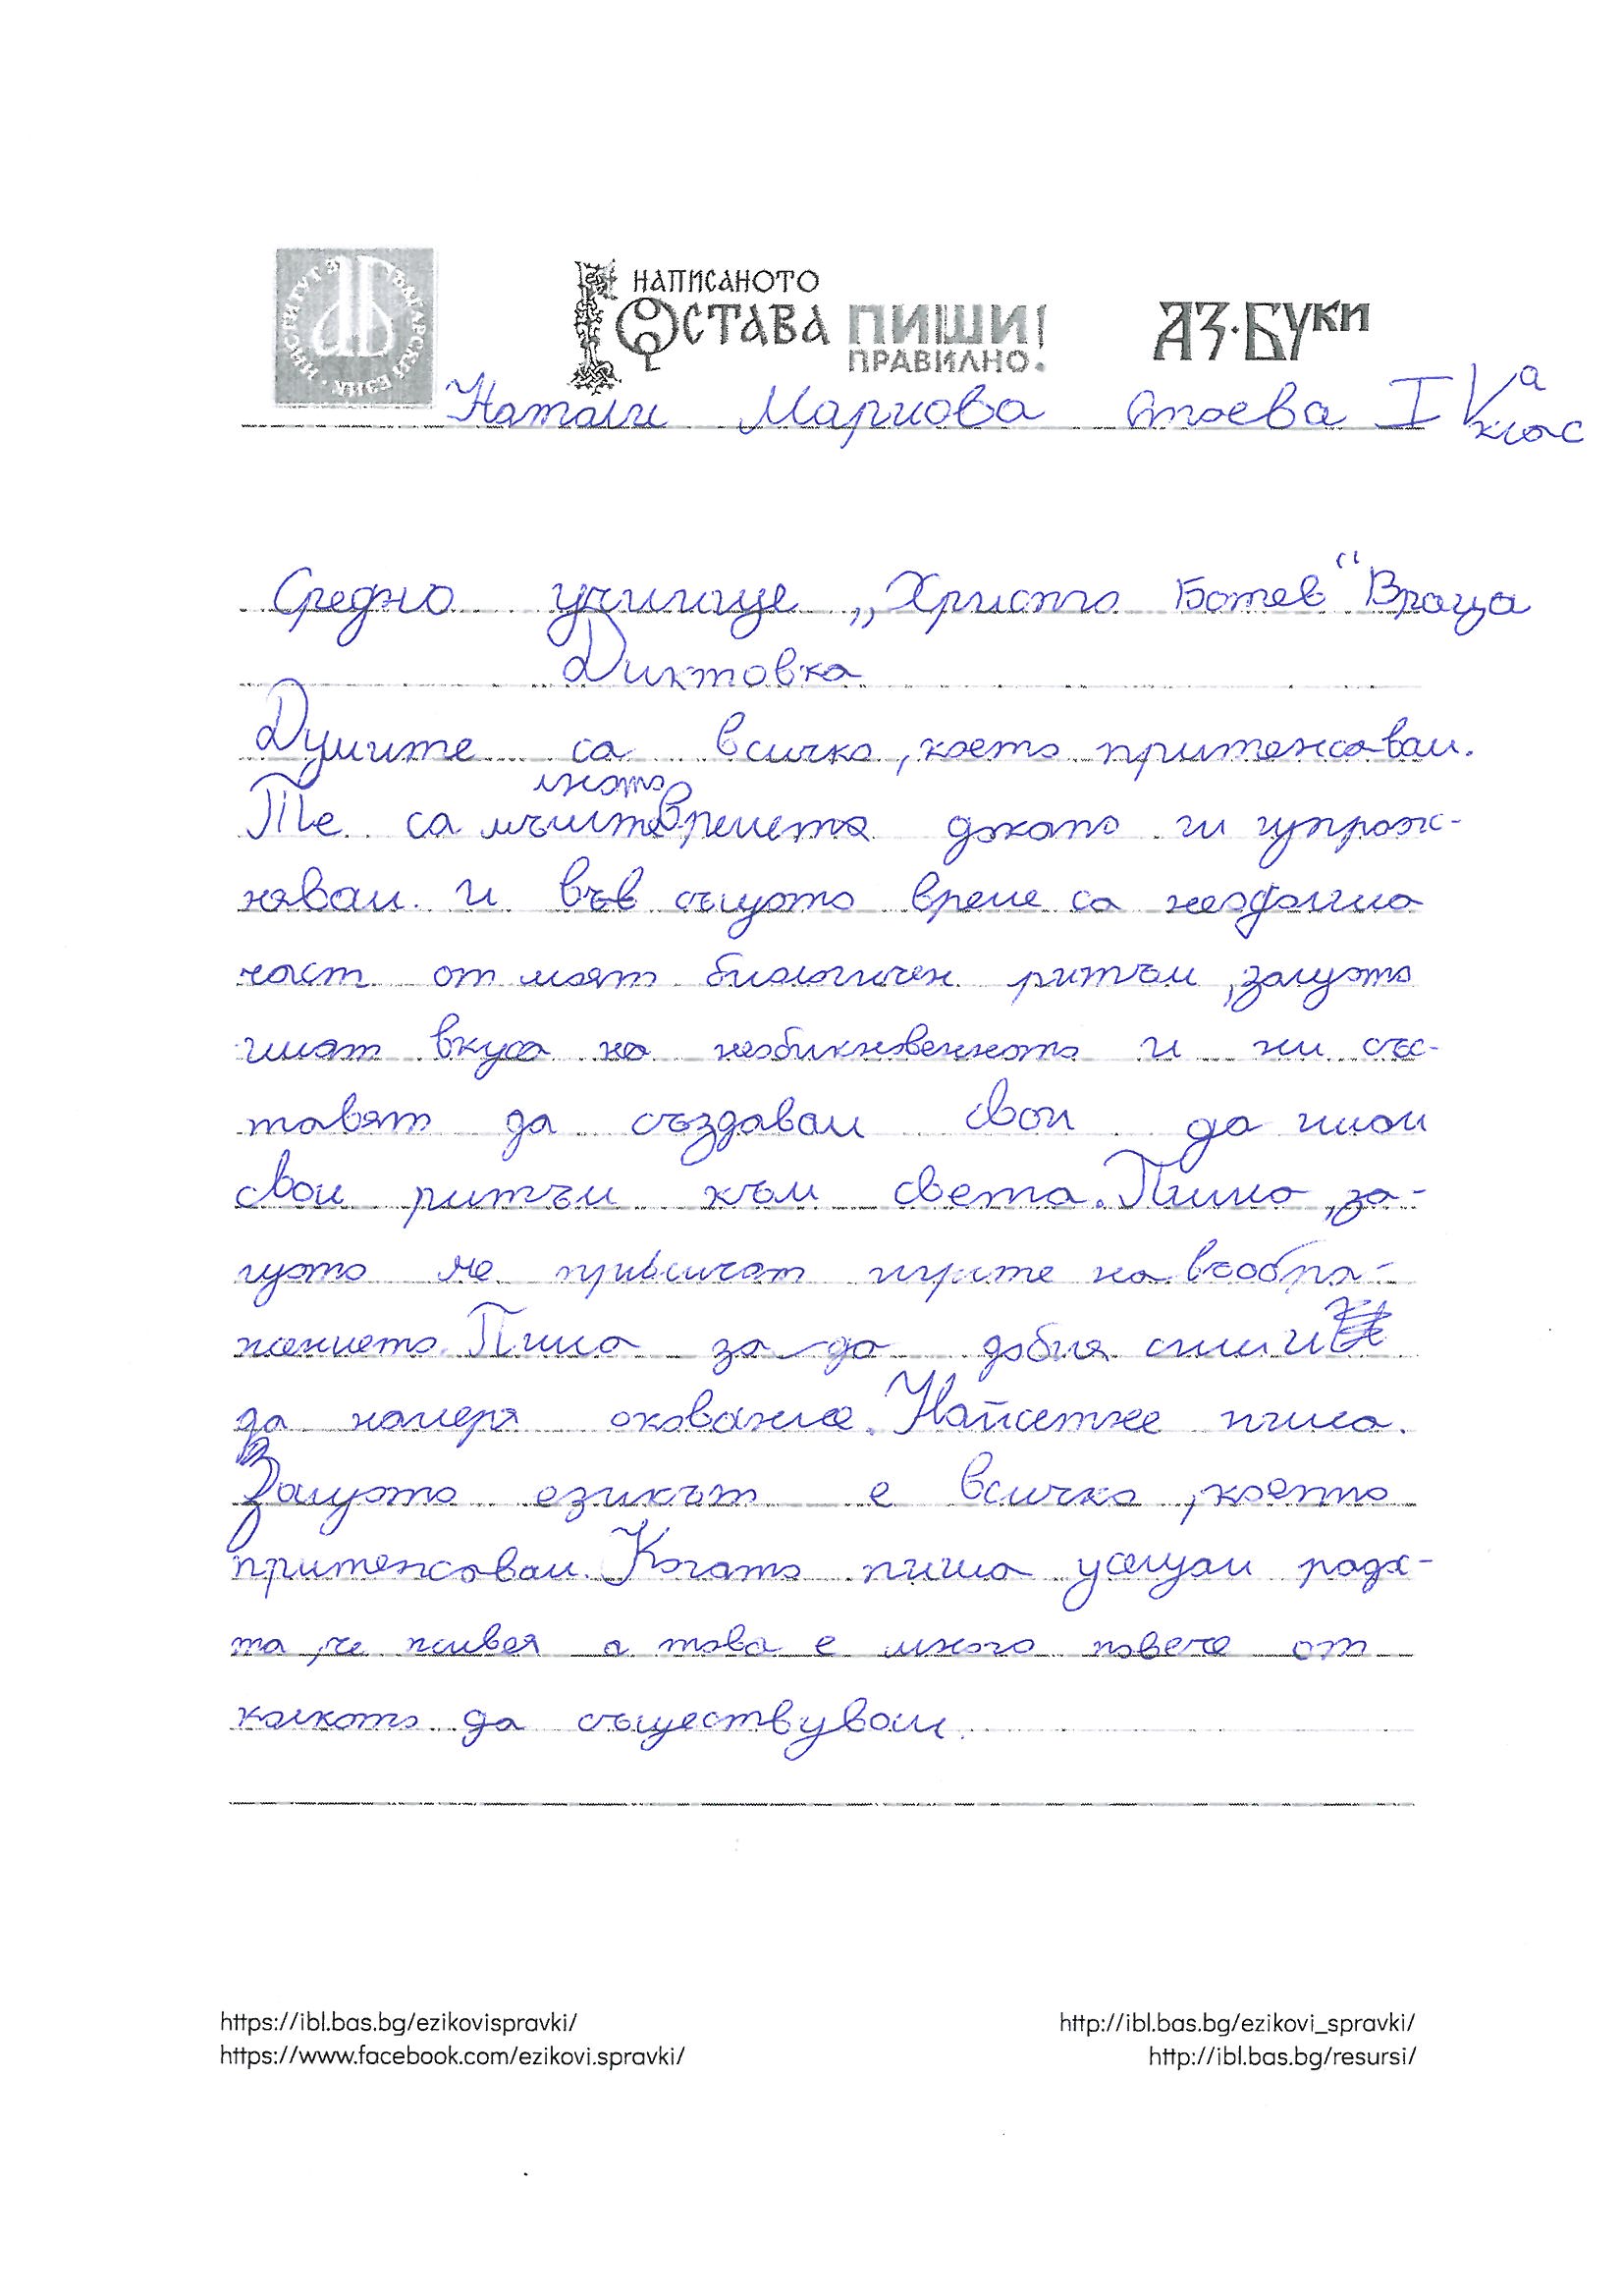 ИНСТИТУТ ЗА БЪЛГАРСКИ ЕЗИК
НАПИСАНОТО ОСТАВА ПИШИ ПРАВИЛНО! АЗ·БУКИ
Натали Мариова Стоева IVа клас
Средно училище „Христо Ботев“ Враца
Диктовка
Думите са всичко, което притежсавам.
Те са мълното времета докато ги упраж-
нявам. И във същото време са неадолима
част от моят биологичен ритъм, защото
имат вкуса на необикновенното и ни със-
тавят да създавам свои да имам
свои ритъм към света. Пиша, за-
щото ме привличат игрите на въобра-
жението. Пиша за да добия сили и
да намеря окование. Найсетне пиша.
Защото езикът е всичко, което
притежсавам. Когато пиша усещам радх-
та, че живея а това е много повече от
колкото да съществувам.
https://ibl.bas.bg/ezikovispravki/ http://ibl.bas.bg/ezikovi_spravki/
https://www.facebook.com/ezikovi.spravki/ http://ibl.bas.bg/resursi/